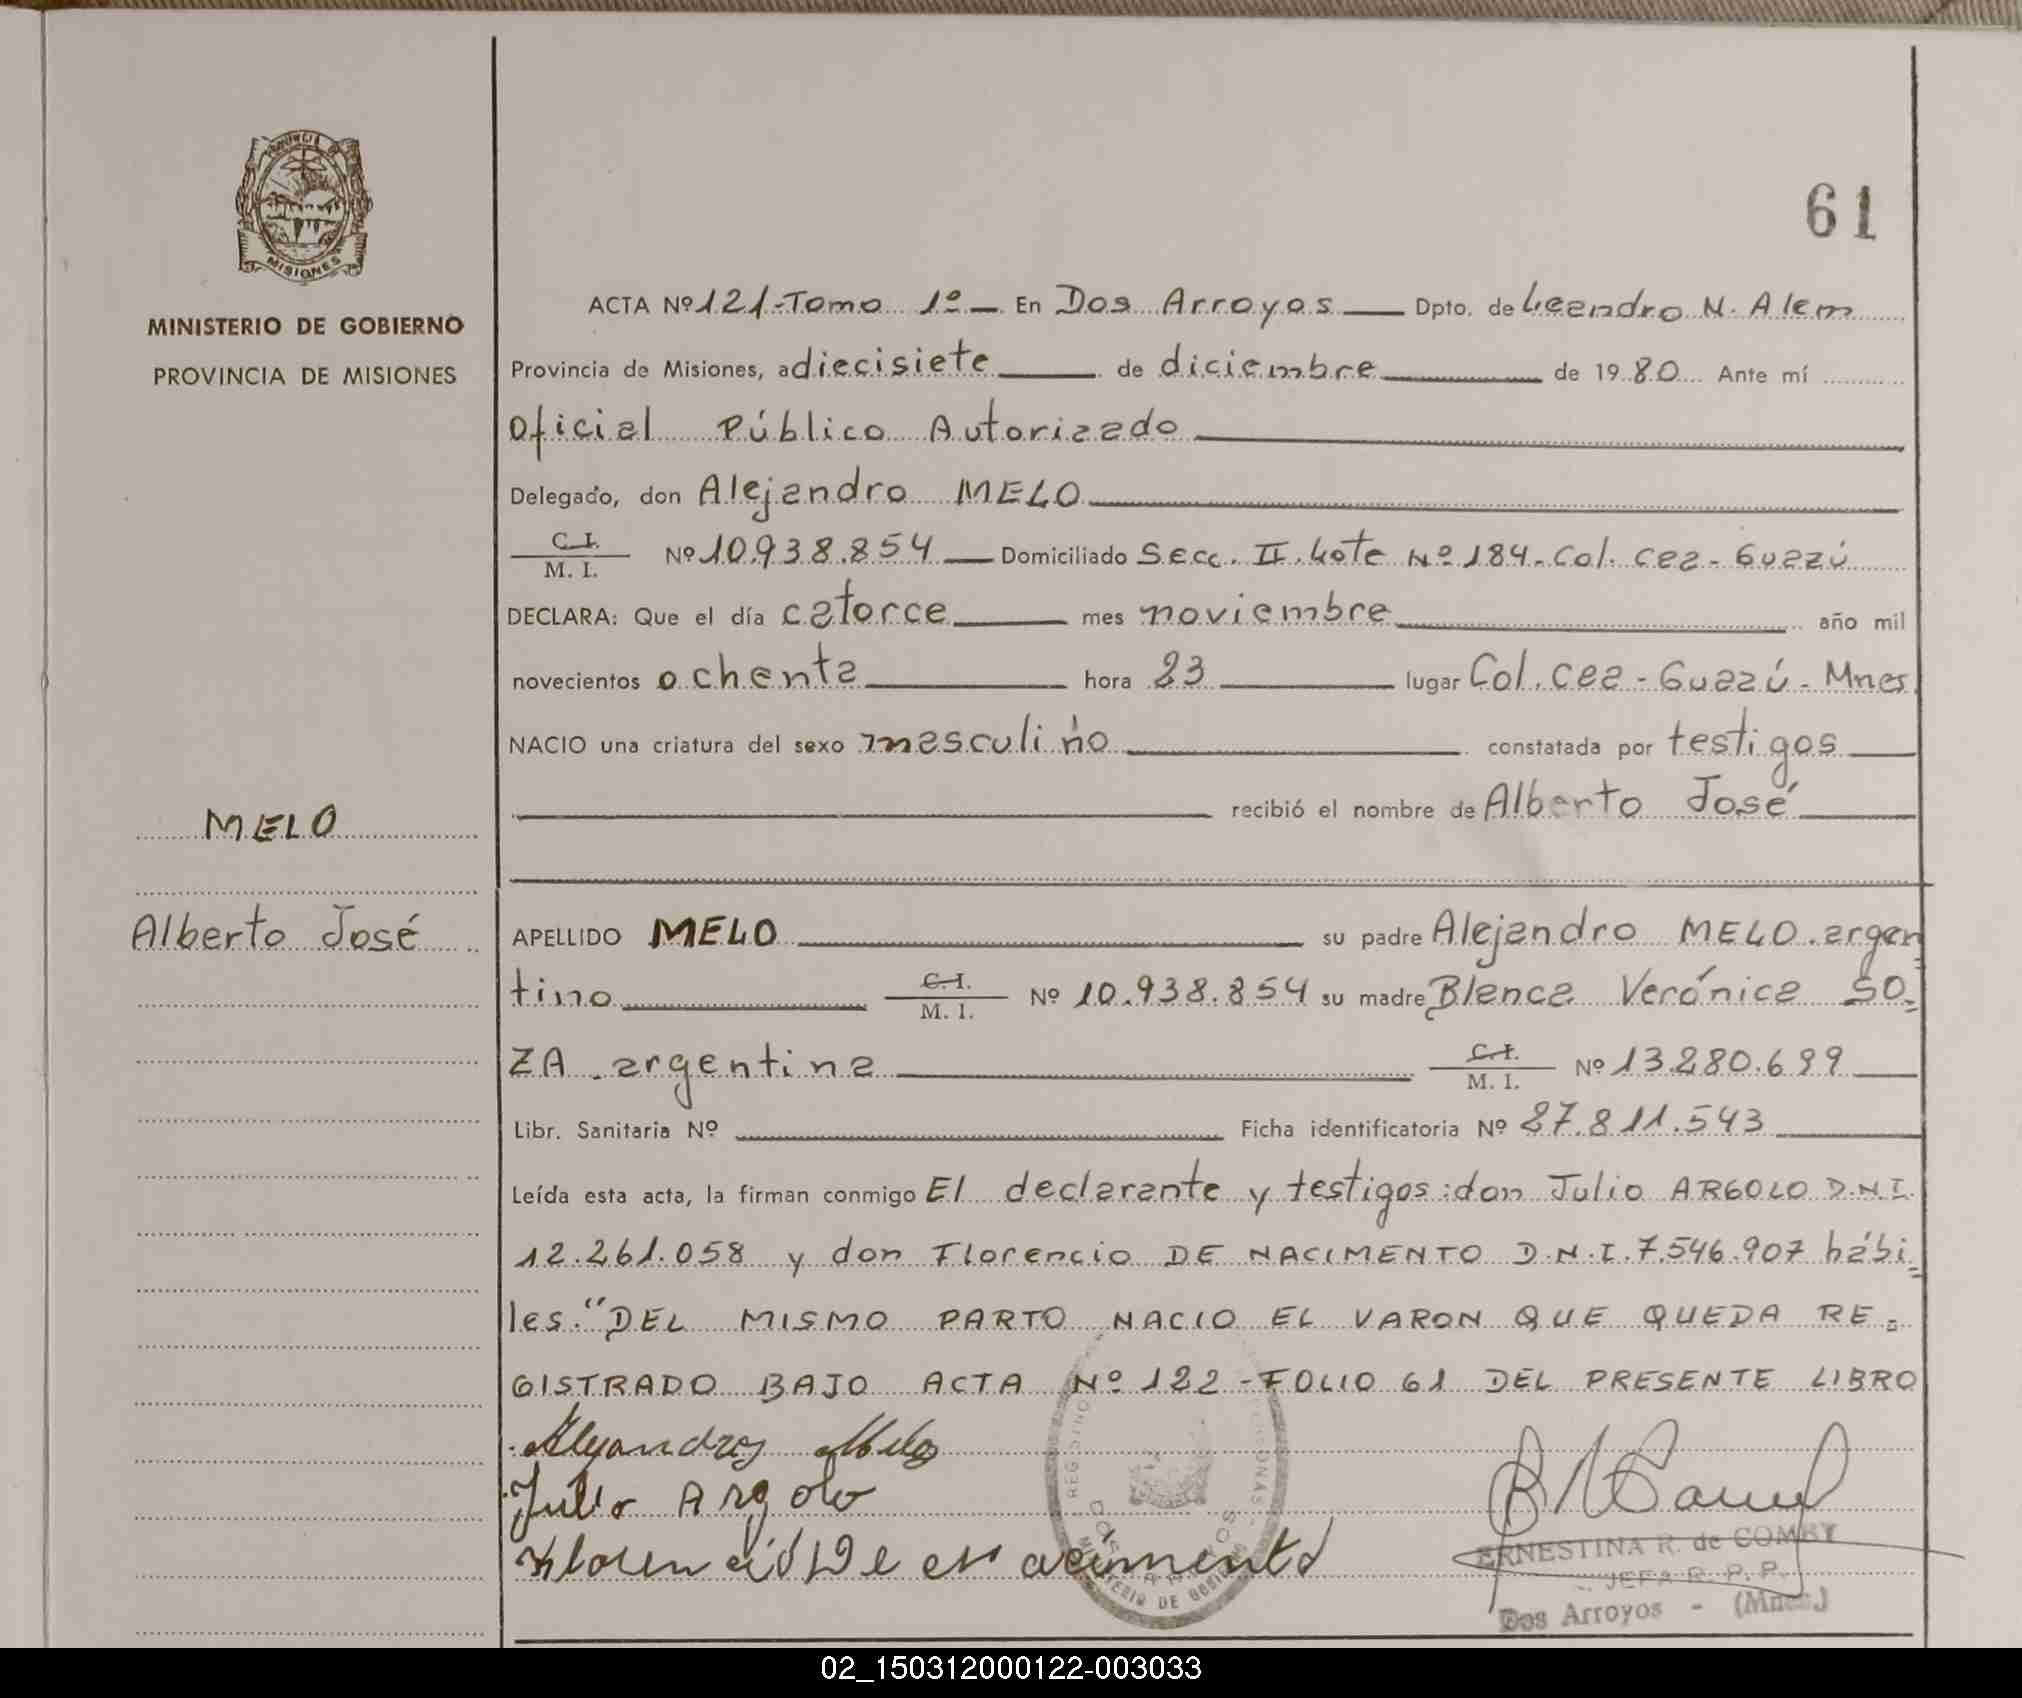 PROVINCIA DE
MISIONES
MINISTERIO DE GOBIERNO
PROVINCIA DE MISIONES
61
ACTA Nº 121-Tomo 1º — En Dos Arroyos — Dpto. de Leandro N. Alem
Provincia de Misiones, a diecisiete de diciembre de 1980 Ante mí
Oficial Público Autorizado
Delegado, don Alejandro MELO
C.I.
M. I. Nº 10.938.854 — Domiciliado Secc. II. Lote Nº 184. Col. Cea-Guazú
DECLARA: Que el día catorce mes noviembre año mil
novecientos ochenta hora 23 lugar Col. Cea-Guazú-Mnes
NACIO una criatura del sexo masculino constatada por testigos
MELO
recibió el nombre de Alberto José
Alberto José
APELLIDO MELO su padre Alejandro MELO. argen
tino C.I. M. I. Nº 10.938.854 su madre Blanca Verónica SO=
ZA. argentina C.I. M. I. Nº 13.280.699
Libr. Sanitaria Nº Ficha identificatoria Nº 27.811.543
Leída esta acta, la firman conmigo El declarante y testigos: don Julio ARGOLO D.N.I.
12.261.058 y don Florencio DE NACIMENTO D.N.I. 7.546.907 hábi=
les. "DEL MISMO PARTO NACIO EL VARON QUE QUEDA RE=
GISTRADO BAJO ACTA Nº 122-FOLIO 61 DEL PRESENTE LIBRO
Alejandro Melo
Julio Argolo
Florencio De nacimento
DOS ARROYOS
MINISTERIO DE GOBIERNO
ERNESTINA R. de COMBY
JEFA R. P. P.
Dos Arroyos - (Mnes.)
02_150312000122-003033